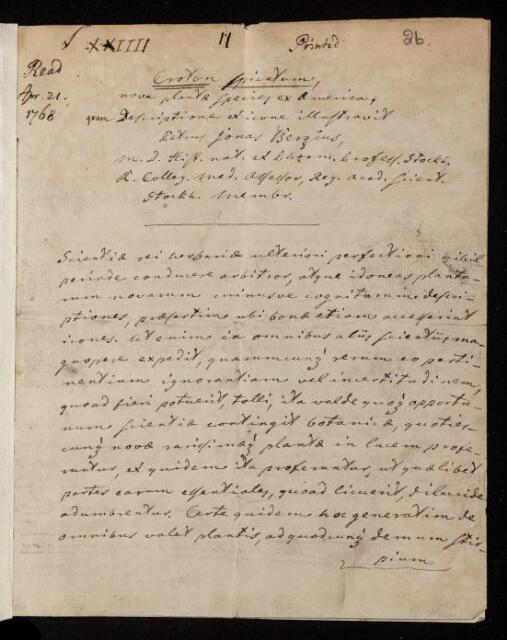 XXIIII 11 Printed 26.
Read
Apr. 21.
1768
Croton spicatum,
nova plantæ species ex America,
quam Descriptione et icone illustravit
Petrus Jonas Bergius,
M. D. Hist. nat. et Pharm. Profess. Stockh.
R. Colleg. Med. Assessor, Reg. Acad. Scient.
Stockh. Membr.
Scientiæ rei herbariæ ulteriori perfectioni nihil
perinde conducere arbitror, atque idoneas planta-
rum novarum minusve cognitarum descri-
ptiones, præsertim ubi bonæ etiam accesserint
icones. Ut enim in omnibus aliis scientiis ma-
gnopere expedit, quamcunq rerum eo perti-
nentium ignorantiam vel incertitudinem,
quoad fieri potuerit, tolli, ita valde quoq opportu-
num scientiæ contingit botanicæ, quoties-
cunq novæ rarissimæq plantæ in lucem profe-
runtur, et quidem ita proferuntur, ut quælibet
partes earum essentiales, quoad licuerit, dilucide
adumbrentur. Certe quidem hoc generatim de
omnibus valet plantis, ad quodcunq demum stir-
pium